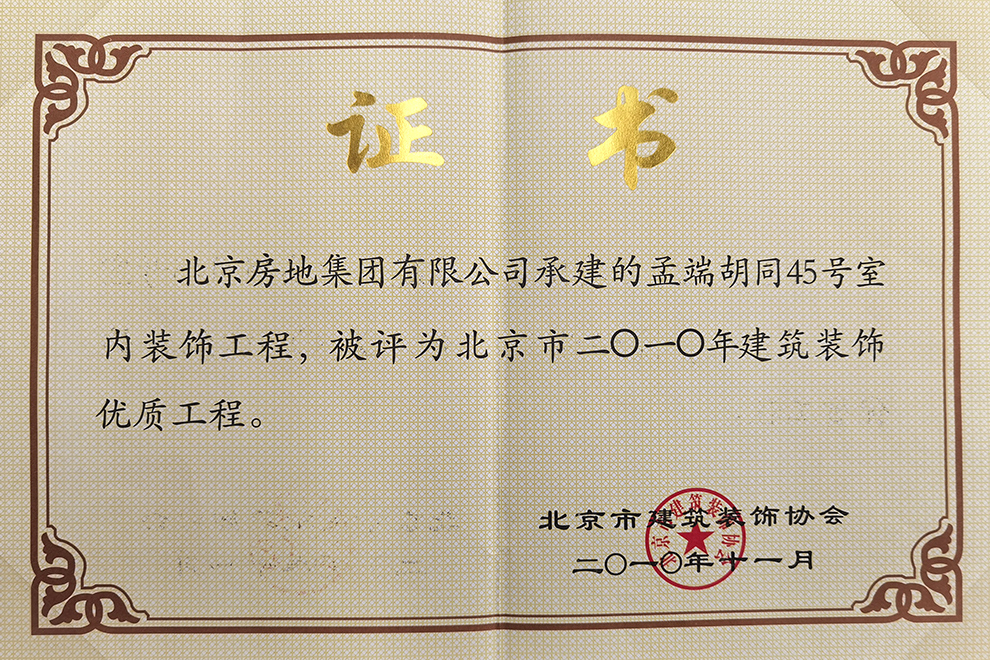 证书
北京房地集团有限公司承建的孟端胡同45号室
内装饰工程，被评为北京市二〇一〇年建筑装饰
优质工程。
北京市建筑装饰协会
二〇一〇年十一月
北京市建筑装饰协会